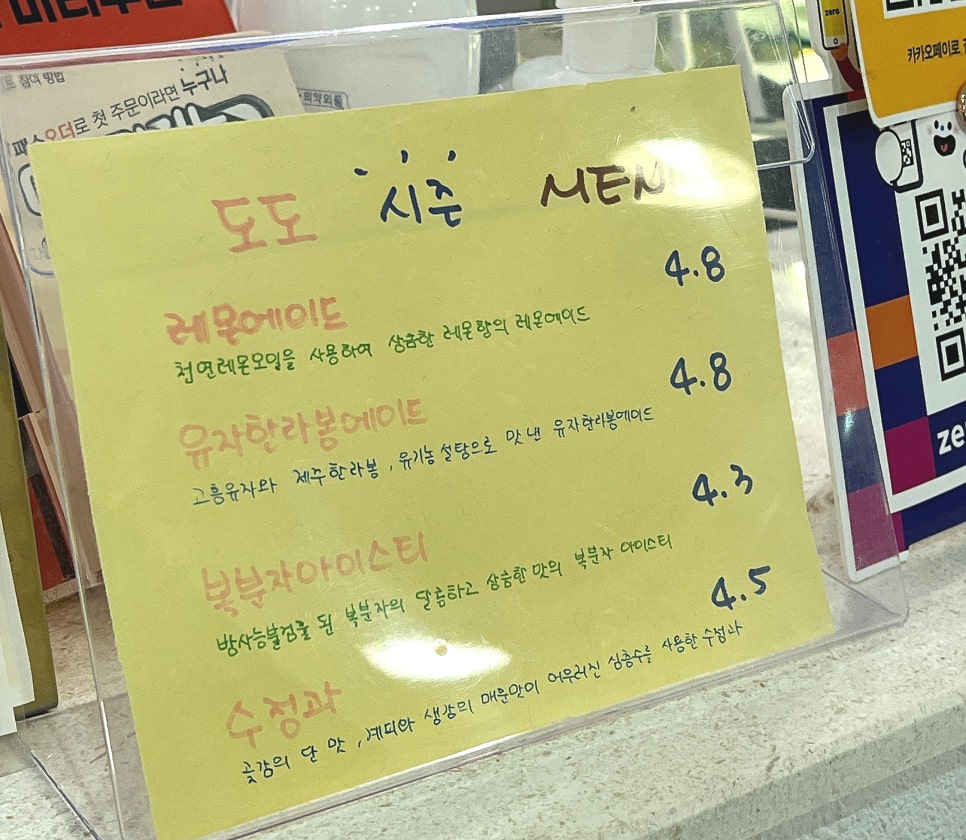 도도 시즌 MENU
레몬에이드 4.8
천연레몬오일을 사용하여 상큼한 레몬향의 레몬에이드
유자한라봉에이드 4.8
고흥유자와 제주한라봉, 유기농설탕으로 맛 낸 유자한라봉에이드
복분자아이스티 4.3
방사능불검출 된 복분자의 달콤하고 상큼한 맛의 복분자 아이스티
수정과 4.5
곶감의 단 맛, 계피와 생강의 매운맛이 어우러진 심층수를 사용한 수정과
참여 방법
패스오더로 첫 주문이라면 누구나
의약외품
zero
카카오페이로
ze